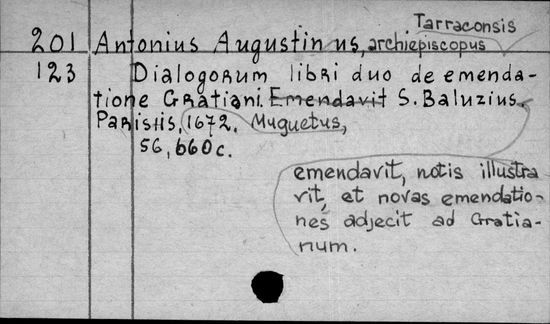 Tarraconsis
201 Antonius Augustinus, archiepiscopus
123 Dialogorum libri duo de emenda-
tione Gratiani. Emendavit S. Baluzius.
Parisiis, 1672. Muguetus,
56, 660c.
emendavit, notis illustra
vit, et novas emendatio-
nes adjecit ad Gratia-
num.